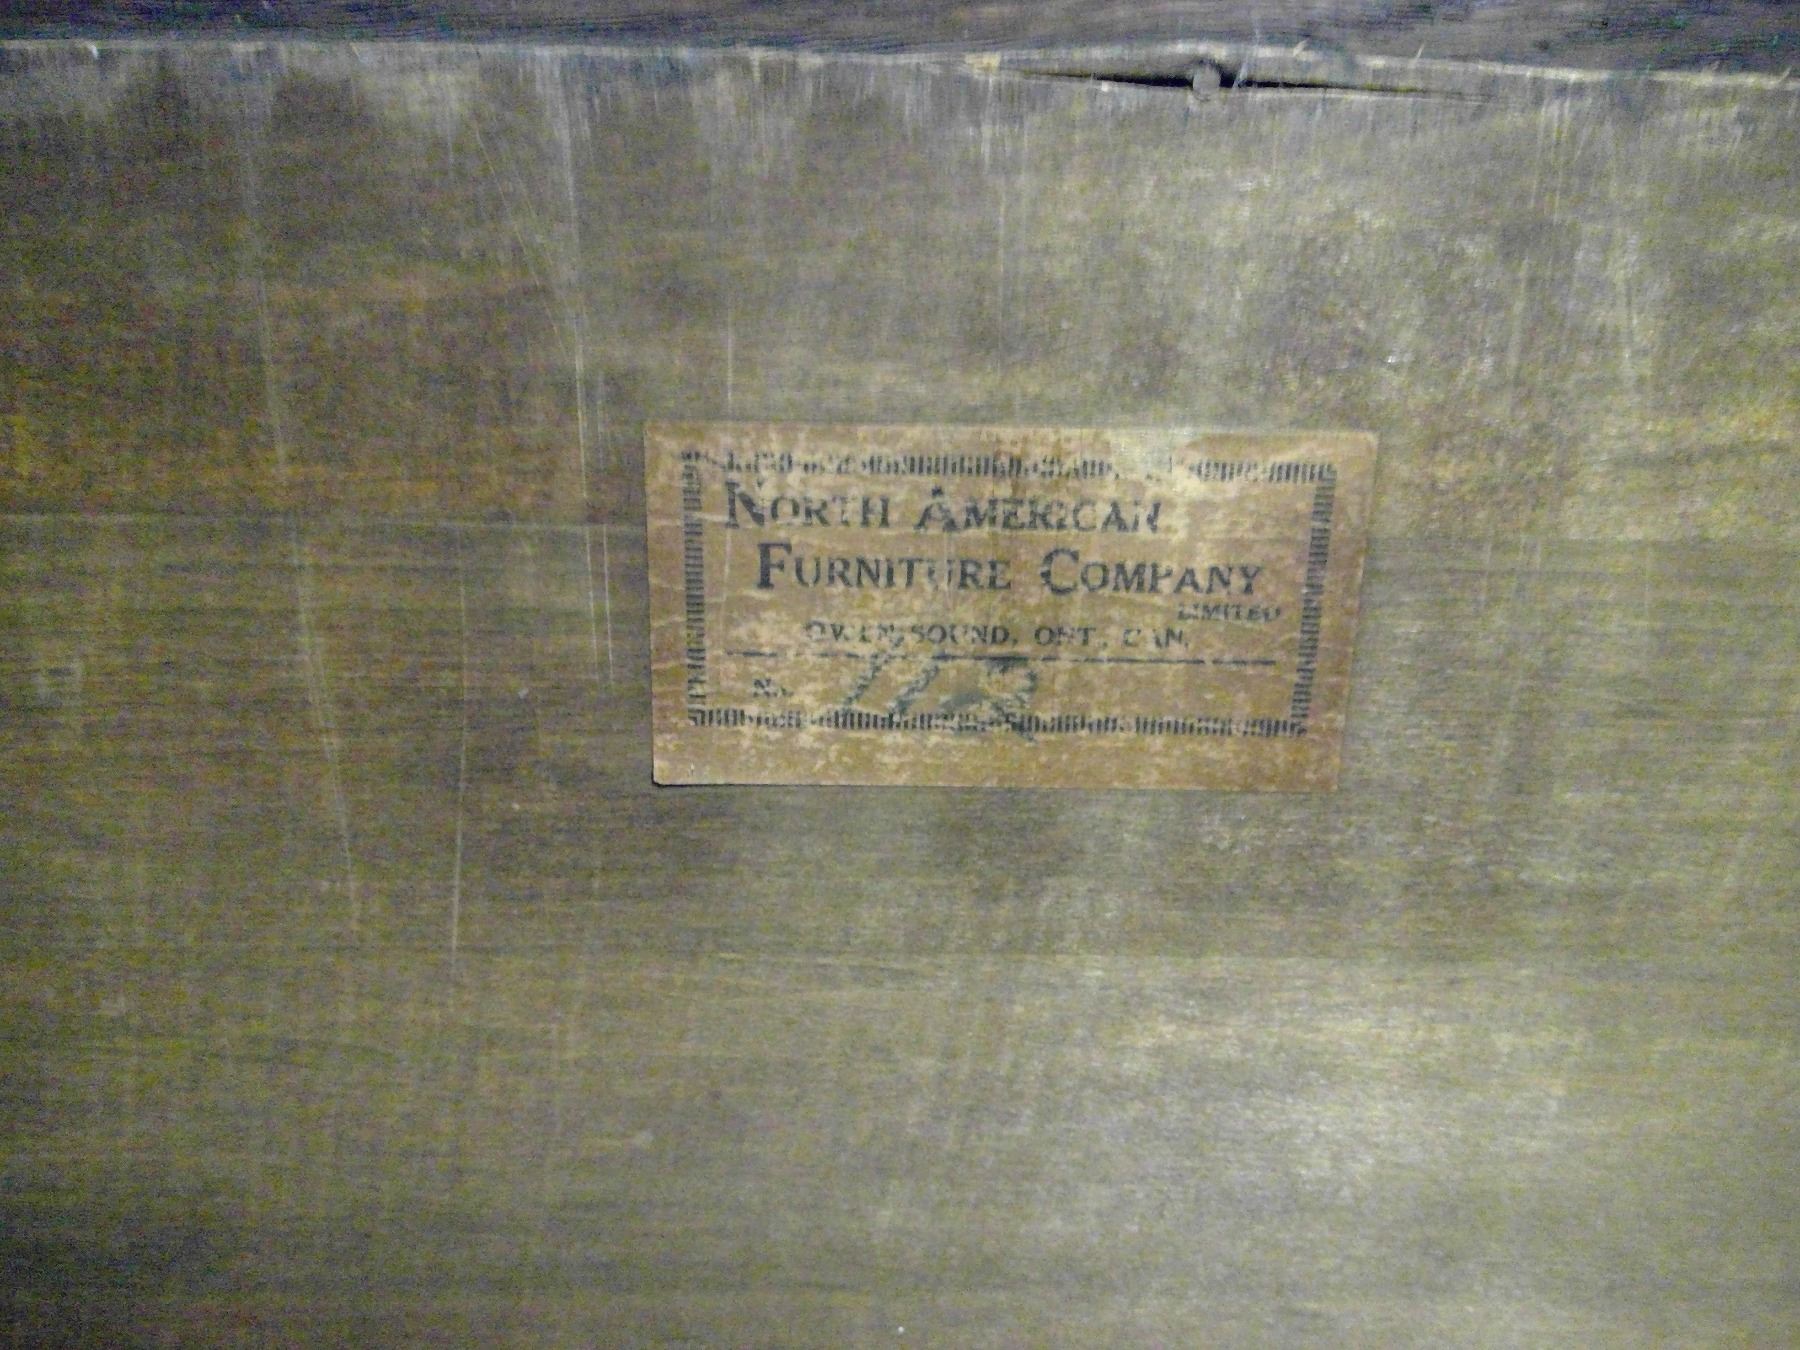 NORTH AMERICAN
FURNITURE COMPANY
LIMITED
OWEN SOUND, ONT., CAN.
No.